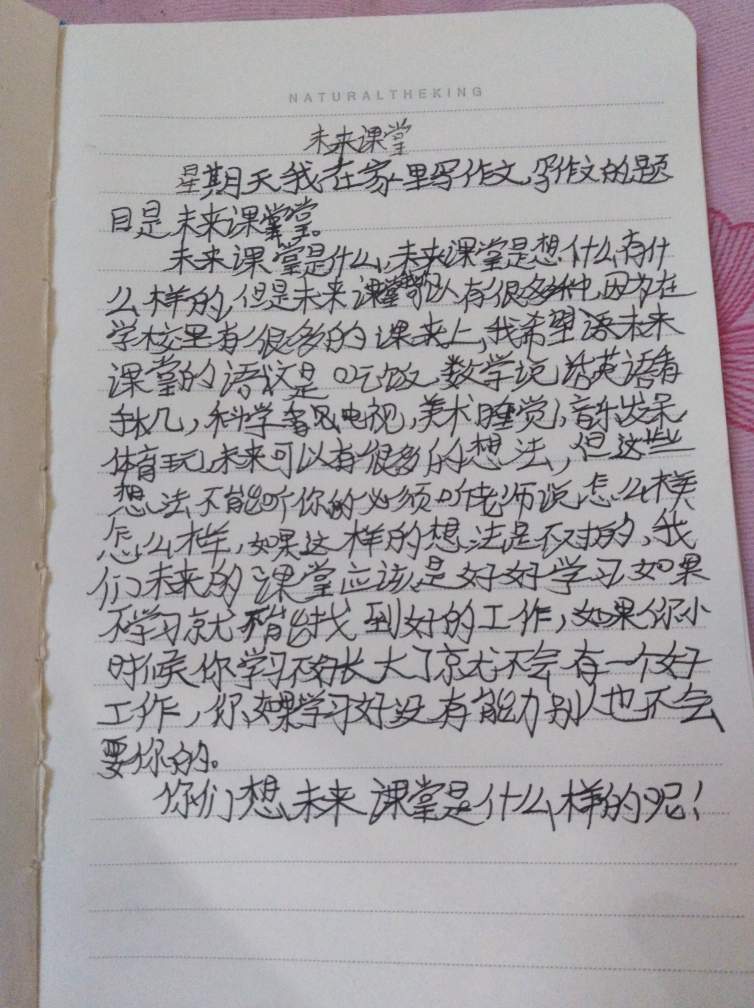 NATURALTHEKING
未来课堂
星期天我在家里写作文,写作文的题
目是未来课堂。
未来课堂是什么,未来课堂是想什么有什
么样的,但是未来课堂可以有很多种,因为在
学校里有很多的课来上,我希望语未来
课堂的语文是吃饭,数学说话英语看
手机,科学看电视,美术睡觉,音乐发呆
体育玩,未来可以有很多的想法,但这些
想法不能听你的必须听老师说怎么样
怎么样,如果这样的想法是不对的,我
们未来的课堂应该是好好学习如果
不学习就不能找到好的工作,如果你小
时候你学习不好长大了就不会有一个好
工作,你如果学习好没有能力别人也不会
要你的。
你们想未来课堂是什么样的呢!